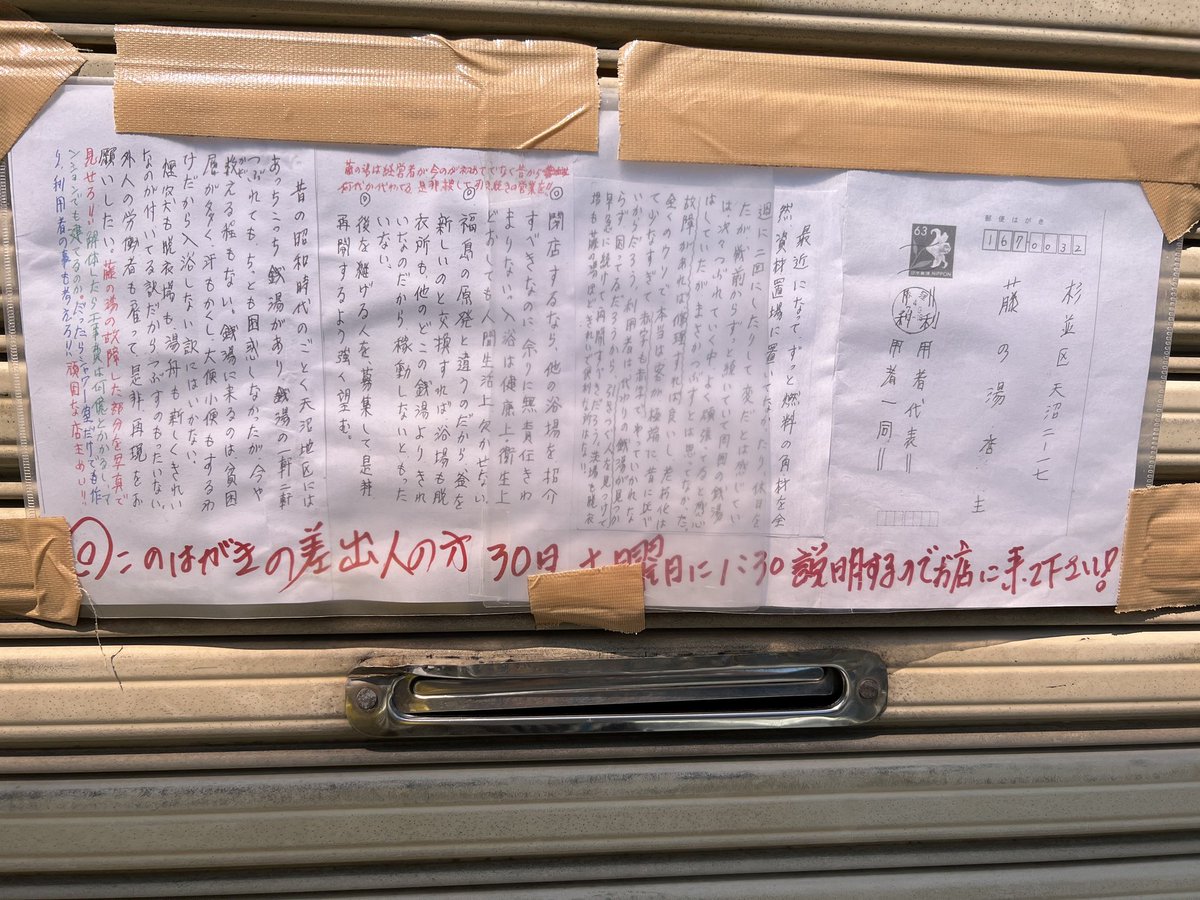 郵便はがき
1670032
63
日本郵便 NIPPON
杉並区天沼二ー一七
藤の湯店主
利用者代表
利用者一同
最近になって、ずっと燃料の角材を全
然、資材置場に置いてなかったり、休日を
週に二回にしたりして変だとは感じてい
たが、戦前からずっと続いていて周囲の銭湯
は、次々つぶれていく中、よく頑張ってると感心
はしていたがまさかつぶすとは思ってなかった。
故障があれば修理すれば良いし、老朽化は
全くのウソで、本当は客が極端に昔に比べ
て少なすぎて、赤字も赤字でやっていかれな
いからだろう。利用者は、代わりの銭湯が見つか
らず、困ってるだろうから、引きつぐ人を見つけて
早急に続けて再開すべきだろう。洗場も脱衣
場も藤の湯ほどきれいで便利な所はない。
◎閉店するなら、他の浴場を紹介
すべきなのに余りに無責任きわ
まりない。入浴は健康上・衛生上
どおしても人間生活上、欠かせない。
◎福島の原発と違うのだから釜を
新しいのと交換すれば浴場も脱
衣所も、他のどこの銭湯よりきれ
いなのだから稼動しないともった
いない。
◎後を継げる人を、募集して是非
再開するよう強く望む。
藤の湯は経営者が今のが初めてでなく昔から
何代か代わってる。是非、探して引き続きの営業を!!
昔の昭和時代のごとく天沼地区には
あっちこっち銭湯があり、銭湯の一軒二軒
つぶれても、ちっとも困惑しなかたが、今や
数える程もない。銭湯に来るのは貧困
層が多く、汗もかくし大便小便もするわ
けだから入浴しない訳にはいかない。
煙突も脱衣場も、湯舟も新しくきれい
なのが付いてる訳だからつぶすのもったいない。
外人の労働者も雇って、是非、再現をお
願いしたい。藤の湯の故障した部分を写真で
見せろ!!解体したら工事費は何億とかかる。して
ンションでも建てるのか。だったらシャワー室だけでも作
り、利用者の事も考えろ!!頑固な店主めい!!
◎このはがきの差出人の方 30日土曜日に1:30説明するのでお店に来て下さい!